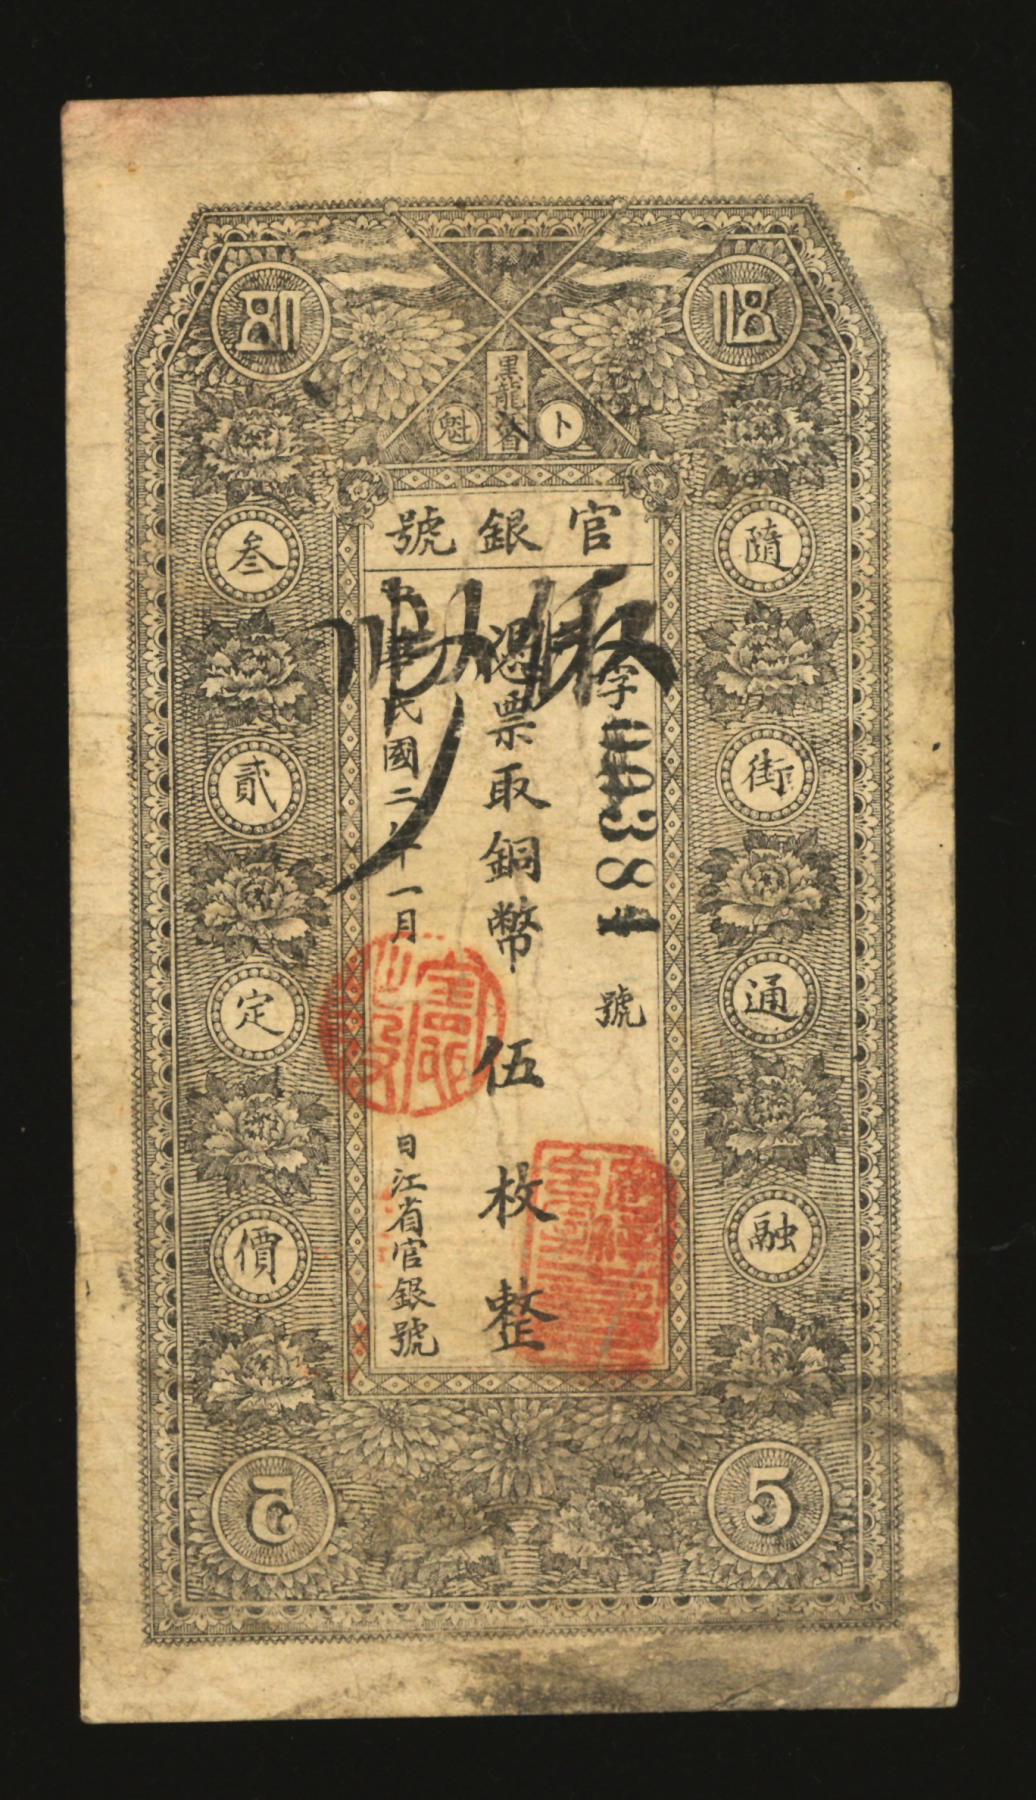 黑龍省
卜魁
官銀號
隨街通融
字
00384
號
憑票取銅幣伍枚整
中華民國二年一月
日江省官銀號
叁貳定價
5
5